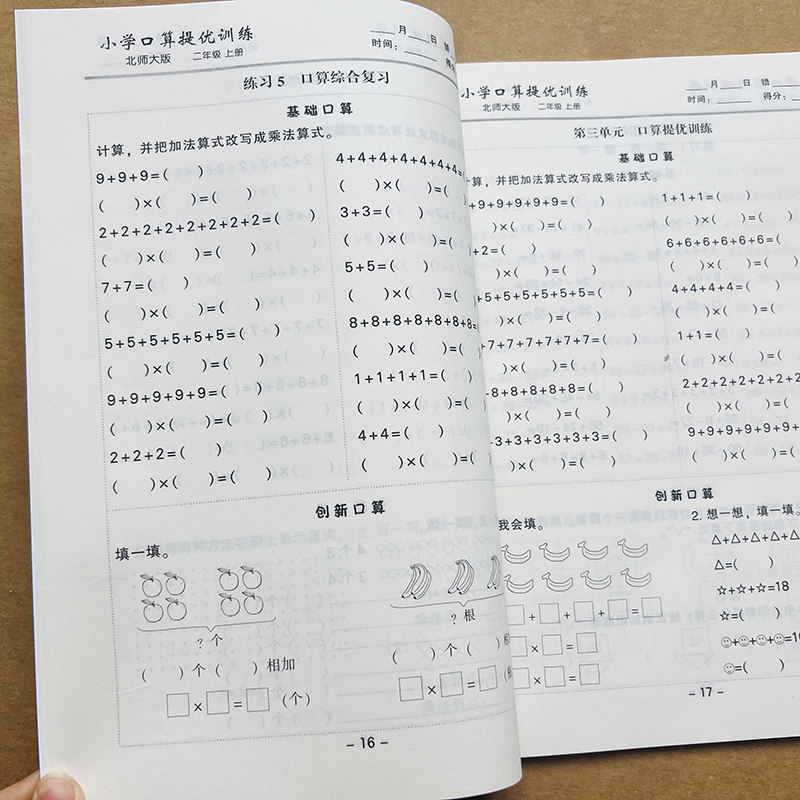 小学口算提优训练
北师大版 二年级 上册
___月___日 错
时间：______ 得分
练习5 口算综合复习
基础口算
计算，并把加法算式改写成乘法算式。
9+9+9=( )
( )×( )=( )
2+2+2+2+2+2+2+2=( )
( )×( )=( )
7+7=( )
( )×( )=( )
5+5+5+5+5+5=( )
( )×( )=( )
9+9+9+9+9=( )
( )×( )=( )
2+2+2=( )
( )×( )=( )
4+4+4+4+4+4+4=(
( )×( )=(
3+3=( )
( )×( )=(
5+5=( )
( )×( )=(
8+8+8+8+8+8+8=
( )×( )=(
1+1+1+1=( )
( )×( )=(
4+4=( )
( )×( )=(
创新口算
填一填。
?个
( )个( )相加
□×□=□(个)
?根
( )个( )
□×□=□
- 16 -
小学口算提优训练
北师大版 二年级 上册
___月___日 错
时间：______ 得分：
第三单元 口算提优训练
基础口算
算，并把加法算式改写成乘法算式。
+9+9+9+9+9=( )
)×( )=( )
+2=( )
)×( )=( )
+5+5+5+5+5+5=( )
)×( )=( )
+7+7+7+7+7+7=( )
)×( )=( )
+8+8+8+8+8=( )
)×( )=( )
+3+3+3+3+3+3=( )
)×( )=( )
1+1+1=( )
( )×( )=( )
6+6+6+6+6+6=(
( )×( )=( )
4+4+4+4=( )
( )×( )=( )
1+1=( )
( )×( )=( )
2+2+2+2+2+2+2
( )×( )=( )
9+9+9+9+9+9+
( )×( )=( )
创新口算
我会填。
□+□+□+□=□
□×□=□
□×□=□
2. 想一想，填一填。
△+△+△+△+△
△=( )
☆+☆+☆=18
☆=( )
☺+☺+☺+☺=1
☺=( )
- 17 -